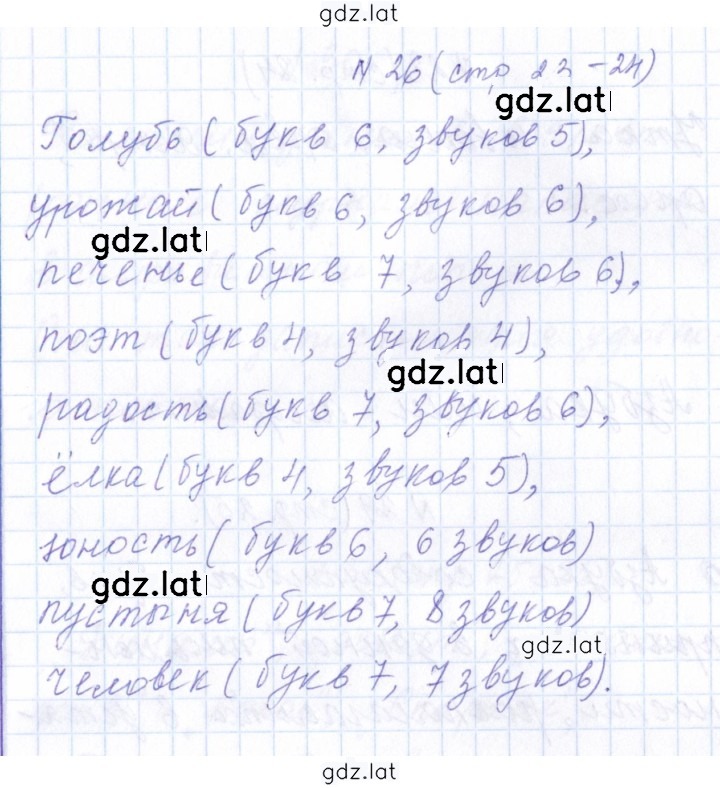 gdz.lat
N 26 (стр 23-24)
gdz.lat
Голубь (букв 6, звуков 5),
урожай (букв 6, звуков 6),
gdz.lat
печенье (букв 7, звуков 6),
поэт (букв 4, звуков 4),
gdz.lat
радость (букв 7, звуков 6),
ёлка (букв 4, звуков 5),
юность (букв 6, 6 звуков)
gdz.lat
пустыня (букв 7, 8 звуков)
gdz.lat
человек (букв 7, 7 звуков).
gdz.lat